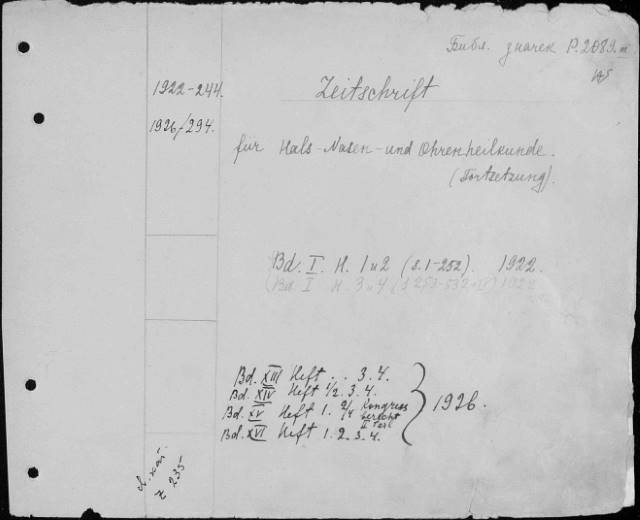 Библ. знаек P. 2089.
1922-244.
Zeitschrift
1926/294.
für Hals-Nasen-und Ohrenheilkunde.
(Fortsetzung).
Bd. I. H. 1 u 2 (S. 1-252). 1922.
(Bd. I H. 3 u 4 (S 253-532+II) 1922
Bd. XIII Heft .. 3. 4.
Bd. XIV Heft 1/2. 3. 4.
Bd. XV Heft 1. 2/4 Kongress bericht II Teil
Bd. XVI Heft 1. 2. 3. 4.
1926.
235